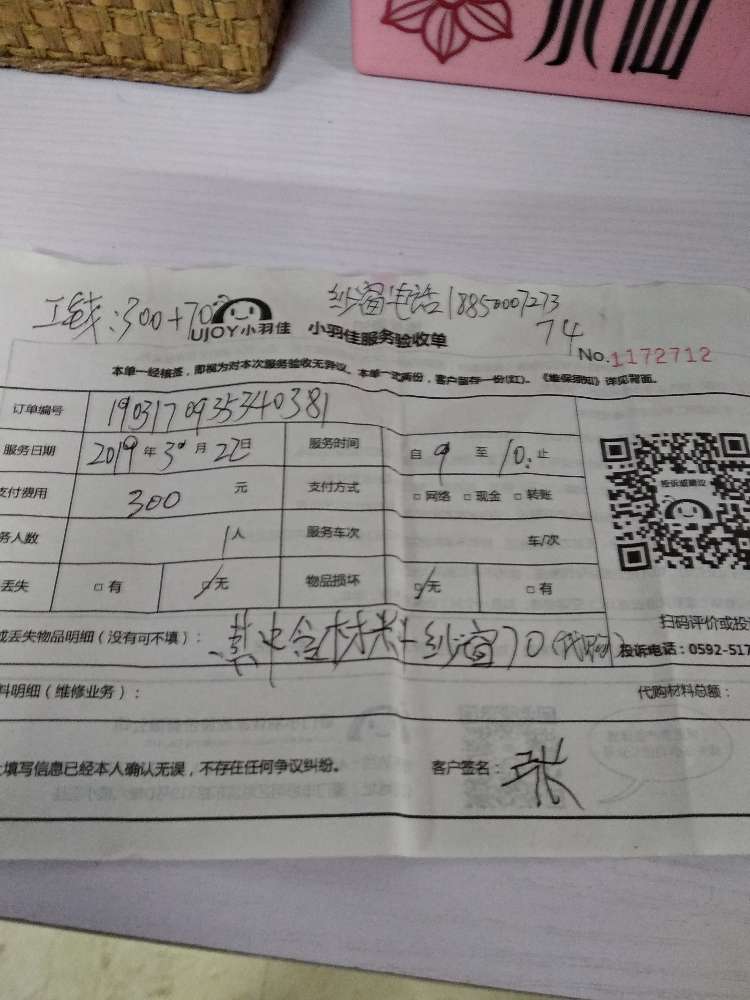 水仙
工钱:300+70
纱窗电话18850007273
74
UJOY小羽佳 小羽佳服务验收单
No.1172712
本单一经核签,即视为对本次服务验收无异议。本单一式两份,客户留存一份(红)。《维保须知》详见背面。
订单编号 1903170935340381
服务日期 2019年3月22日 服务时间 自9至10:止
支付费用 300元 支付方式 □网络 □现金 □转账
务人数 1人 服务车次 车/次
丢失 □有 □无 物品损坏 □无 □有
投诉或建议
扫码评价或投
或丢失物品明细(没有可不填): 其中含材料+纱窗70(代购)
投诉电话:0592-517
料明细(维修业务): 代购材料总额:
填写信息已经本人确认无误,不存在任何争议纠纷。 客户签名: